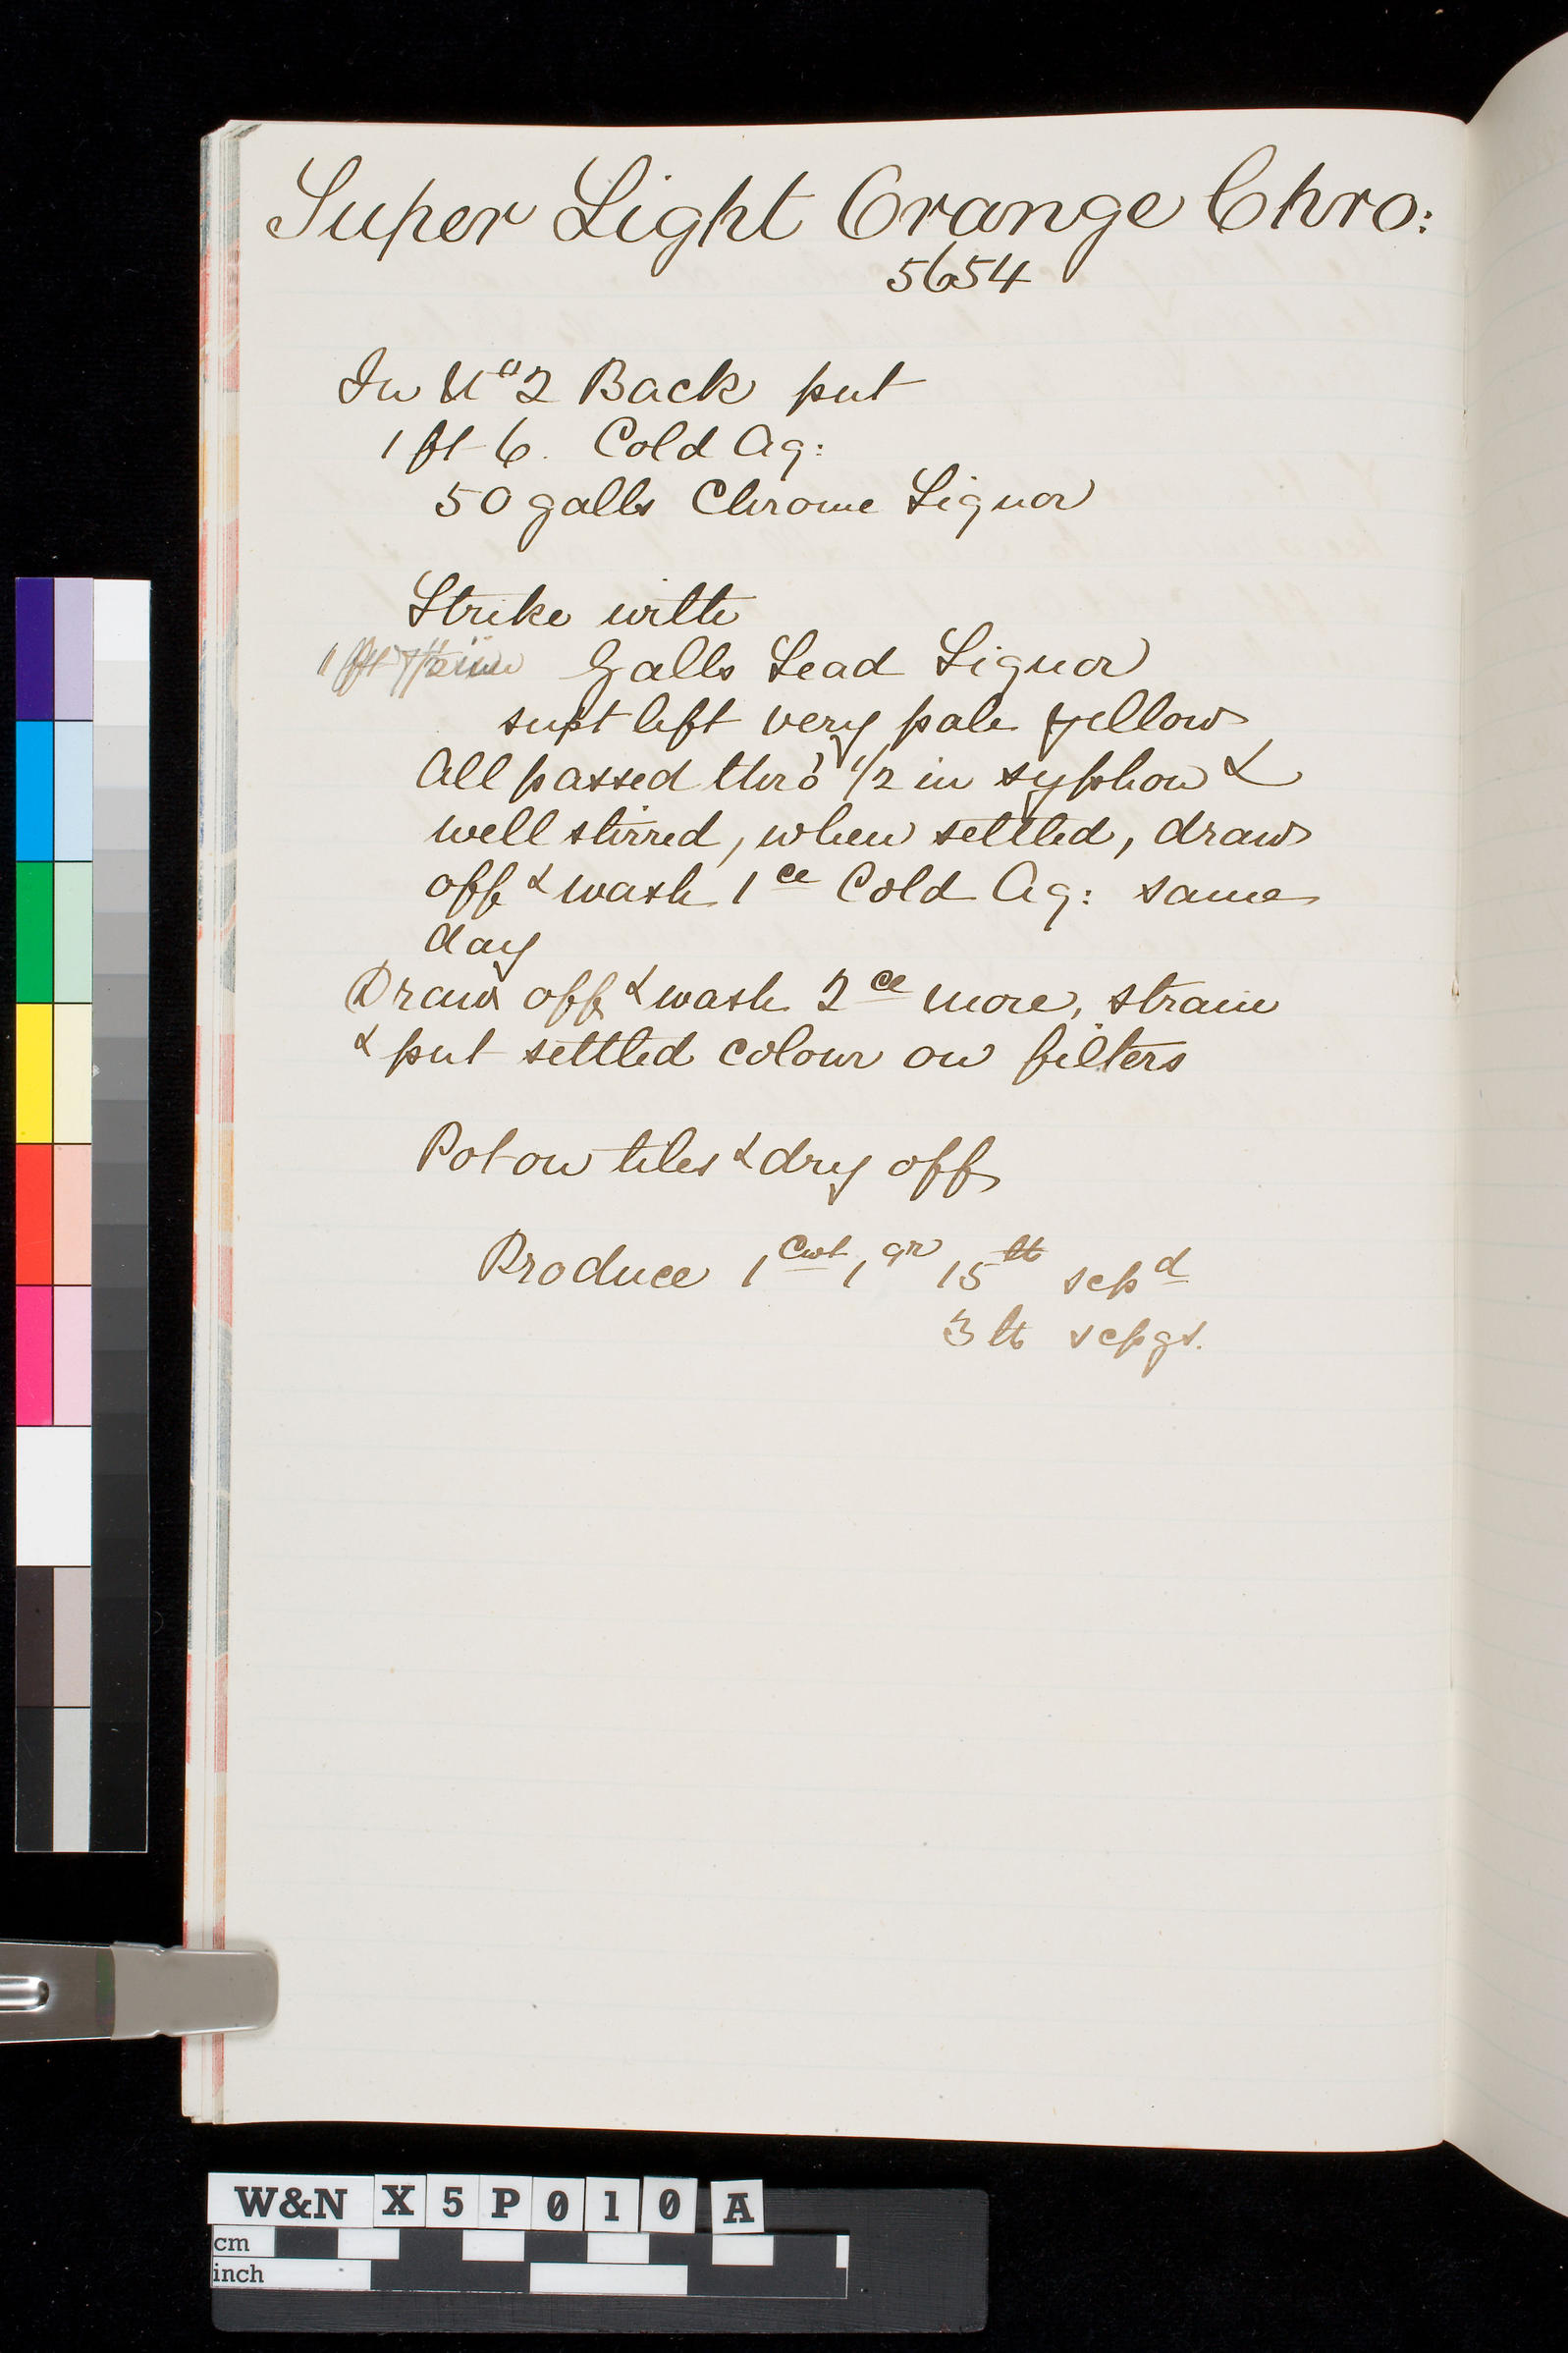 Super Light Orange Chro:
5654
In No 2 Back put
1 ft 6. Cold Aq:
50 galls Chrome Liquor
Strike with
1 ft 7 1/2 in Galls Lead Liquor
supt left very pale yellow
All passed thro' 1/2 in syphon &
well stirred, when settled, draw
off & wash 1ce Cold Aq: same
day
Draw off & wash 2ce more, strain
& put settled colour on filters
Pot on tiles & dry off
Produce 1 Cwt 1 qr 15 lb scpd
3 lb scpgs.
W&N X5P010A
cm
inch